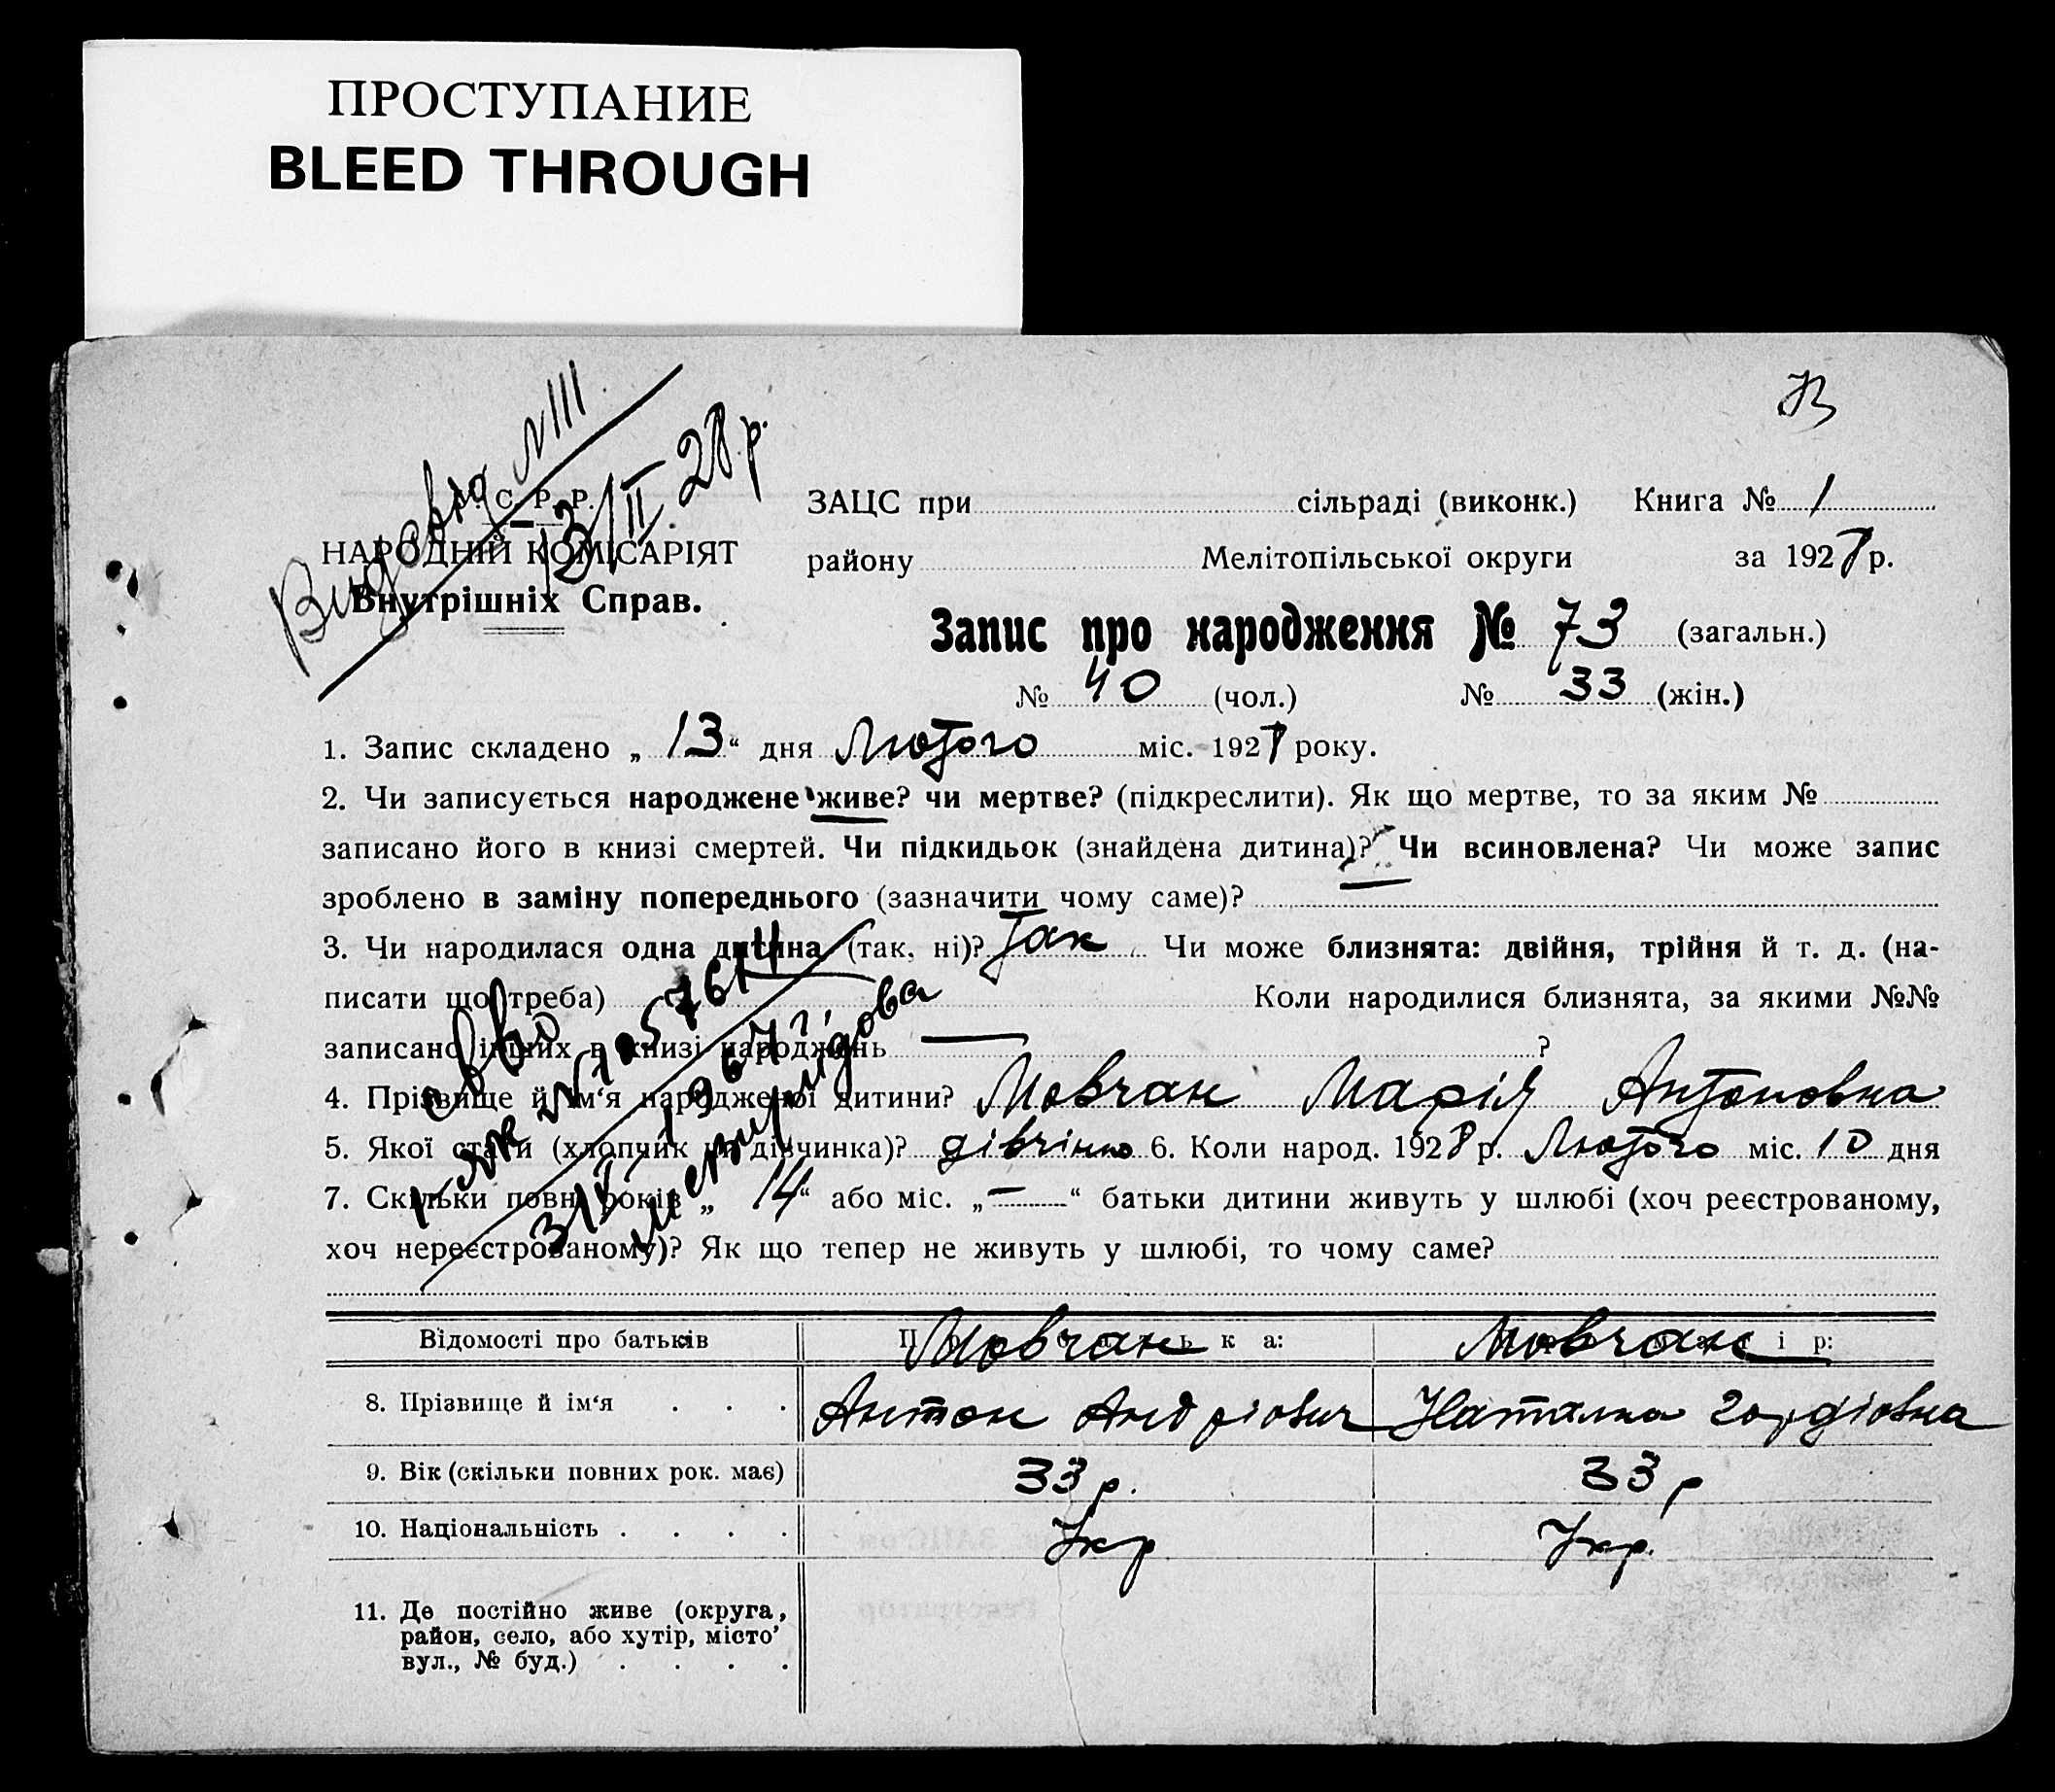 ПРОСТУПАНИЕ
BLEED THROUGH
Видано N III
13/II 28 р.
С. Р. Р.
НАРОДНІЙ КОМІСАРІЯТ
Внутрішніх Справ.
ЗАЦС при сільраді (виконк.) Книга № 1
району Мелітопільської округи за 1928 р.
Запис про народження № 73 (загальн.)
№ 40 (чол.) № 33 (жін.)
1. Запис складено „ 13 “ дня Лютого міс. 1928 року.
2. Чи записується народжене живе? чи мертве? (підкреслити). Як що мертве, то за яким №
записано його в книзі смертей. Чи підкидьок (знайдена дитина)? Чи всиновлена? Чи може запис
зроблено в заміну попереднього (зазначити чому саме)?
3. Чи народилася одна дитина (так, ні)? Так Чи може близнята: двійня, трійня й т. д. (на-
писати що треба) Коли народилися близнята, за якими №№
записано інших в книзі народжень — ?
4. Прізвище й ім‘я народженої дитини? Мовчан Марія Антоновна
5. Якої стати (хлопчик чи дівчинка)? дівчінка 6. Коли народ. 1928 р. Лютого міс. 10 дня
7. Скільки повн. років „ 14 “ або міс. „ — “ батьки дитини живуть у шлюбі (хоч реєстрованому,
хоч нереєстрованому)? Як що тепер не живуть у шлюбі, то чому саме?
Відомості про батьків
Мовчан Мовчан
8. Прізвище й ім‘я . . . Антон Андріович Наталка Гордіовна
9. Вік (скільки повних рок. має) 33 р. 33 р
10. Національність . . . . Укр Укр.
11. Де постійно живе (округа,
район, село, або хутір, місто’
вул., № буд.) . . . .